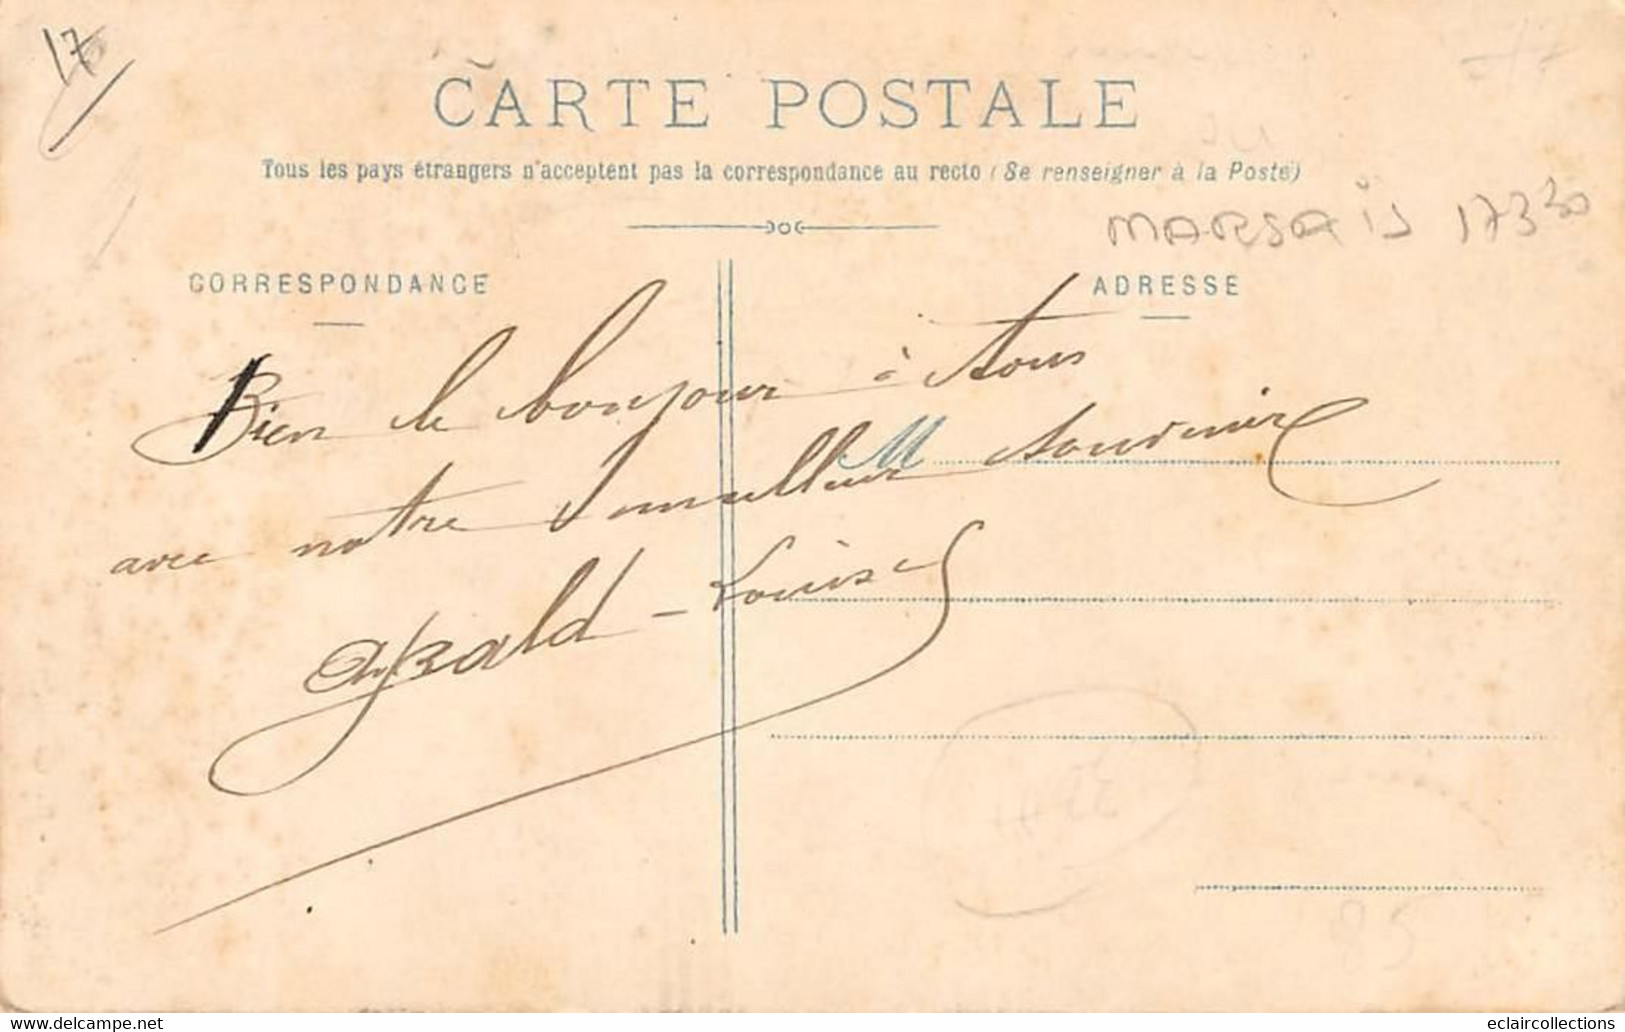 17
CARTE POSTALE
Tous les pays étrangers n'acceptent pas la correspondance au recto (Se renseigner à la Poste)
MARSAIS 17330
CORRESPONDANCE
ADRESSE
Bien le bonjour à tous
M
avec notre meilleur souvenir
Louise
22
95
www.delcampe.net
eclaircollections